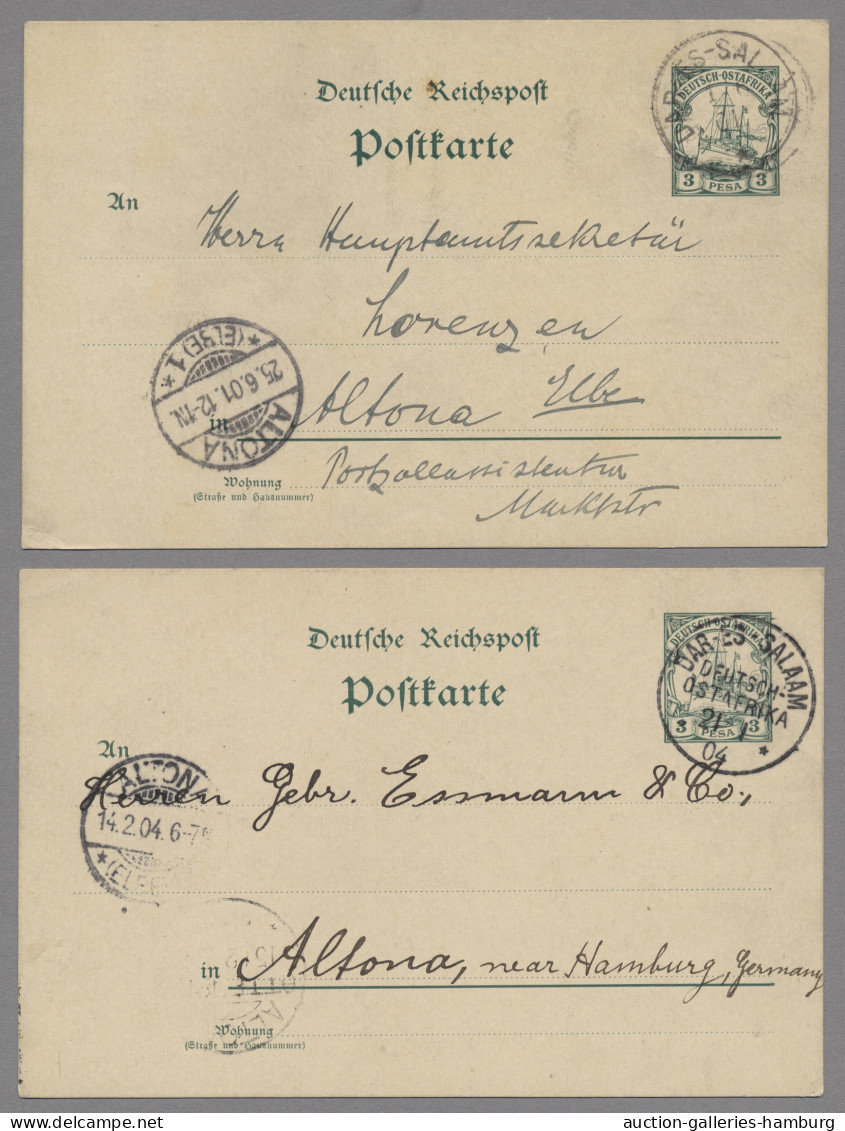 Deutsche Reichspost
Postkarte
DAR-ES-SALAAM
DEUTSCH-OSTAFRIKA
3 PESA 3
An Herrn Hauptamtssekretär
Lorenzen
in Altona Elbe
ALTONA
25.6.01. 12-1N.
* (ELBE) 1 *
Portzollassistentur
Marktstr
Wohnung
(Straße und Hausnummer)
Deutsche Reichspost
Postkarte
DEUTSCH-OSTAFRIKA
3 PESA 3
DAR-ES-SALAAM
DEUTSCH-
OSTAFRIKA
21 1
04 *
An
Herren Gebr. Essmann & Co.,
ALTON
14.2.04. 6-7
* (ELBE
in Altona, near Hamburg, Germany
Wohnung
(Straße und Hausnummer)
auction-galleries-hamburg